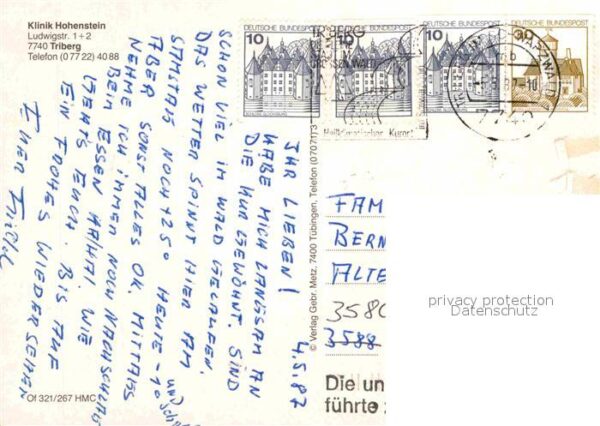 Klinik Hohenstein
Ludwigstr. 1+2
7740 Triberg
Telefon (07722) 4088
DEUTSCHE BUNDESPOST
10
DEUTSCHE BUNDESPOST
10
DEUTSCHE BUNDESPOST
10
DEUTSCHE BUNDESPOST
TRIBERG
Heilklimatischer Kurort
4.5.87
IHR LIEBEN!
HABE MICH LANGSAM AN
DIE KUR GEWÖHNT. SIND
SCHON VIEL IM WALD GELAUFEN.
DAS WETTER SPINNT HIER AM
SAMSTAG NOCH +25° HEUTE -1°
und
ABER SONST ALLES OK. MITTAGS
NEHME ICH IMMER NOCH NACHSCHLAG
BEIM ESSEN HA!HA! WIE
GEHTS EUCH. BIS AUF
EIN FROHES WIEDERSEHEN
EUER
© Verlag Gebr. Metz, 7400 Tübingen, Telefon (07071)
FAM
BERN
ALTE
3580
3588
privacy protection
Datenschutz
Die un
führte
Of 321/267 HMC